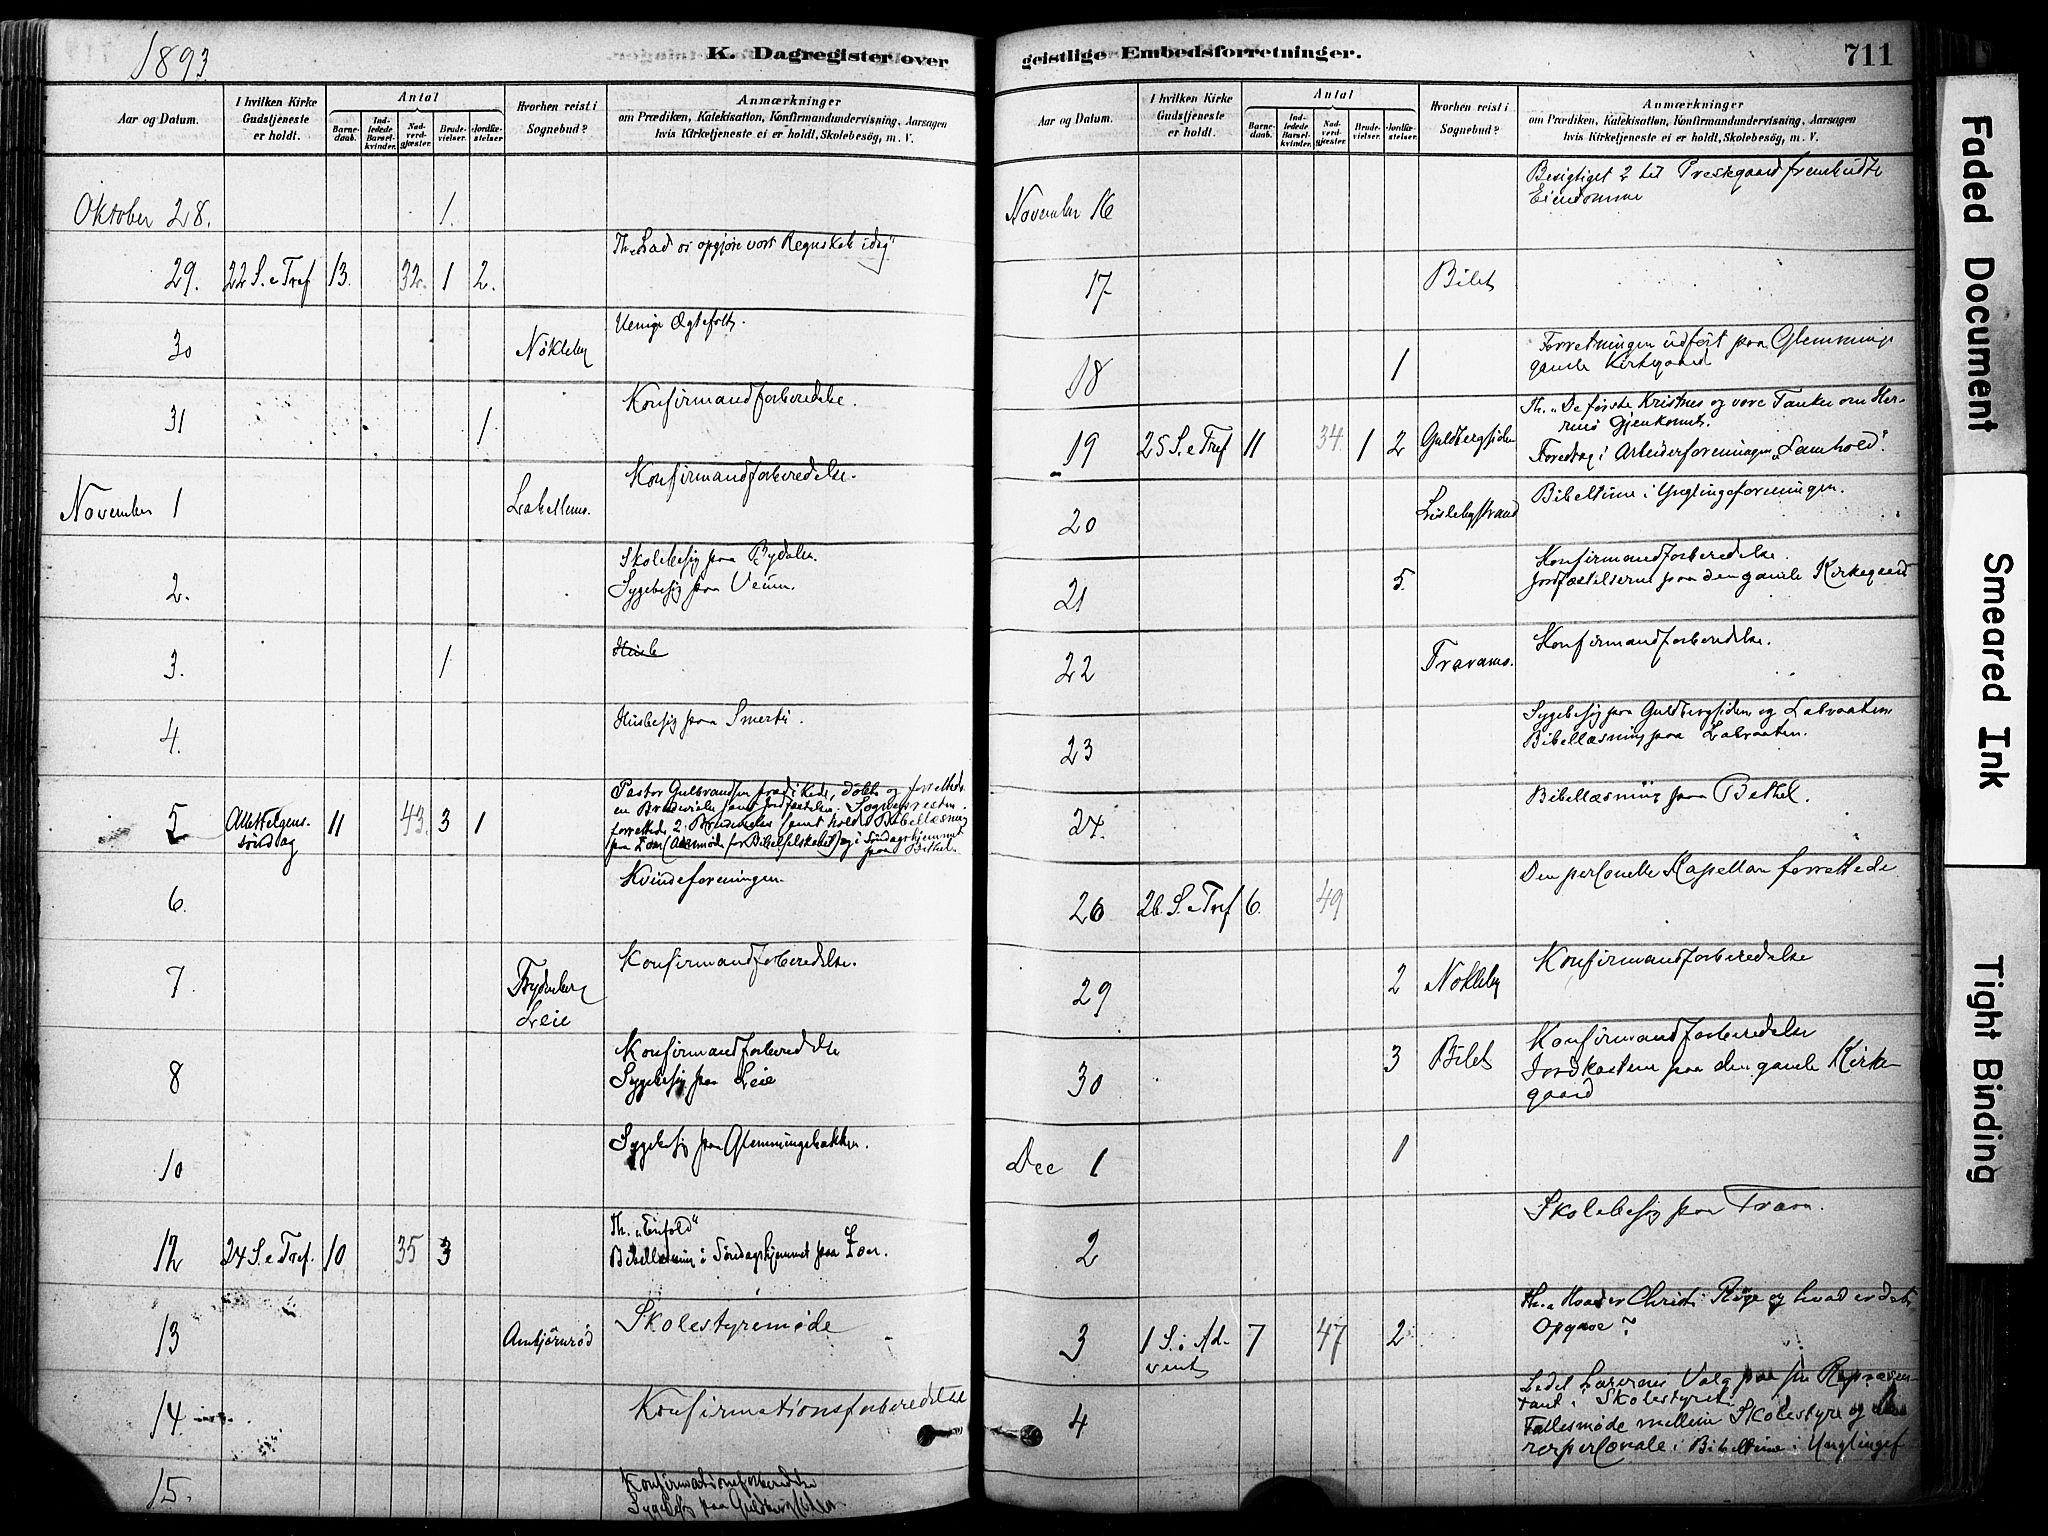 1893
K. Dagregister over
Aar og Datum.
I hvilken Kirke
Gudstjeneste
er holdt.
Antal
Barne-
daab.
Ind-
ledede
Barsel-
kvinder.
Nad-
verd-
gjæster.
Brude-
vielser.
Jordfæ-
stelser
Hvorhen reist i
Sognebud?
Anmærkninger
om Prædiken, Katekisation, Konfirmandundervisning, Aarsagen
hvis Kirketjeneste ei er holdt, Skolebesög, m. V.
Oktober 28. 1.
29. 22 S. e Tref 13. 32. 1 2. Th. "Lad os opgjøre vort Regnskab idag"
30 Nökleby Uenige Ægtefolk.
31 1 Konfirmandforberedelse.
November 1 Konfirmandforberedelse.
2. Skolebesøg paa Rydalen.
Sygebesøg paa Veum.
3. 1 Husb
4. Husbesøg paa Smertu.
5 Allehelgens- 11 43. 3 1 Pastor Gulbrandsen prædikede, døbte og forrettede
søndag en Brudevielse samt Jordfæstelse. Sognepresten
forrettede 2 Brudevielser samt holdt Bibellæsning
paa (Aarsmøde for Bibelselskabet) og i Søndagshjemmet
paa Bethel.
6. Kvindeforeningen.
7. Frydenberg Konfirmandforberedelse.
Leie
8 Konfirmandforberedelse
Sygebesøg paa Leie
10 Sygebesøg paa Glemmingebakken.
12 24 S. e Tref. 10 35 3 Th. "Enfold"
Bibellæsning i Søndagshjemmet paa
13 Ambjörnröd Skolestyremøde
14 Konfirmationsforberedelse
15. Konfirmationsforberedelse
Sygebesøg paa Guldbergsiden
geistlige Embedsforretninger.
711
Aar og Datum.
I hvilken Kirke
Gudstjeneste
er holdt.
Antal
Barne-
daab.
Ind-
ledede
Barsel-
kvinder.
Nad-
verd-
gjæster.
Brude-
vielser.
Jordfæ-
stelser
Hvorhen reist i
Sognebud?
Anmærkninger
om Prædiken, Katekisation, Konfirmandundervisning, Aarsagen
hvis Kirketjeneste ei er holdt, Skolebesög, m. V.
November 16 Besigtiget 2 til Prestegaard frembudte
Eiendomme
17 Bilet
18 1 Forretningen udført paa Glemminge
gamle Kirkegaard
19 25 S. e Tref 11 34. 1 2 Guldbergsiden Th. "De første Kristnes og vore Tanker om Her-
rens Gjenkomst.
Foredrag i Arbeiderforeningen "Samhold".
20 Lislebystrand Bibeltime i Ynglingeforeningen.
21 5. Konfirmandforberedelse.
Jordfæstelserne paa den gamle Kirkegaard
22 Konfirmandforberedelse.
23 Sygebesøg paa Guldbergsiden og Labraaten
Bibellæsning paa Labraaten.
24. Bibellæsning paa Bethel.
26 26. S. e Tref 6. 49 Den personelle Kapellan forrettede
29 2 Nökleby Konfirmandforberedelse
30 3 Bilet Konfirmandforberedelse
Jordkastene paa den gamle Kirke-
gaard
Dec 1 1
2 Skolebesøg paa Trara.
3 1 S. i Ad- 7 47 2 Th. "Hvad er Christi Rige og hvad er dets
vent Opgave?
4 Ledet Lærernes Valg paa sin Repræsen-
tant i Skolestyret.
Fællesmøde mellem Skolestyre og Læ-
rerpersonale i Bibeltime i Ynglingef
Faded Document
Smeared Ink
Tight Binding